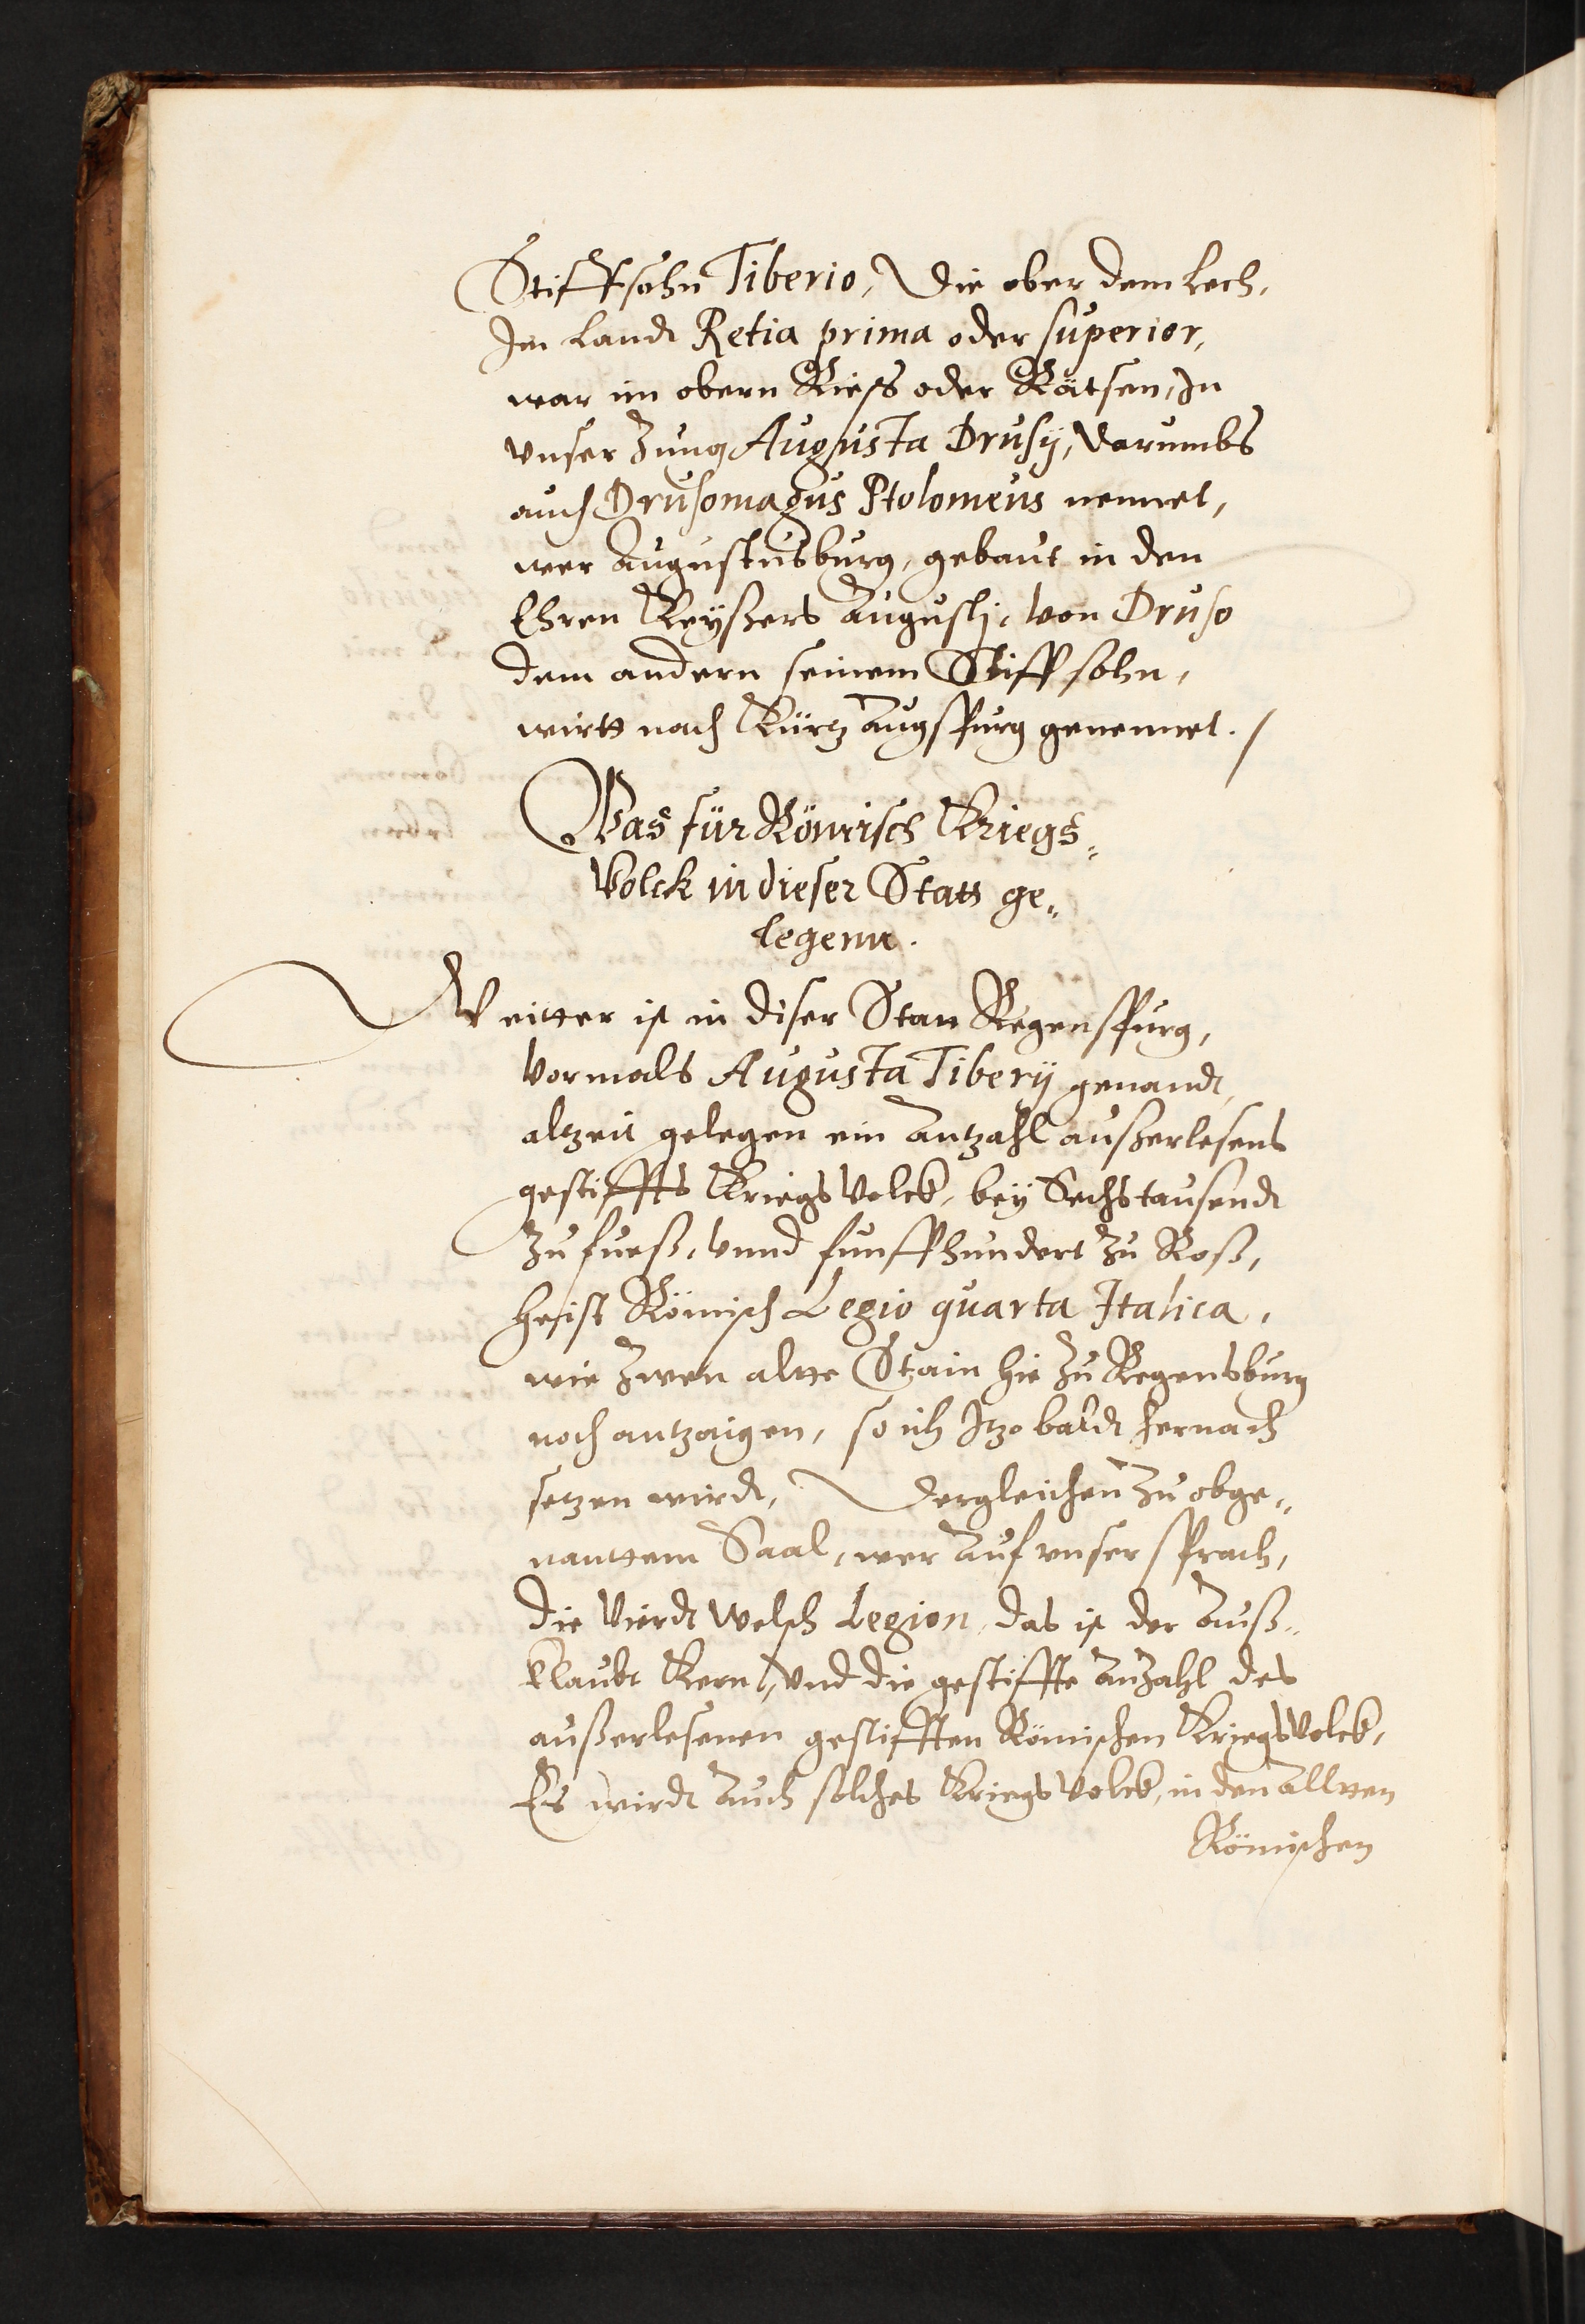 Stiffsohn Tiberio, Die ober dem Lech,
Im Landt Retia prima oder superior,
war im obern Rieß oder Rätsen, In
vnser Zung Augusta Drusij, Darumbs
auch Drusomagus Ptolomeus nennet,
wer Augustusburg, gebaut in den
Ehren Keyßers Augustj, von Druso
dem andern seinem Stiffsohn,
wirtt nach Kürtz Augspurg genennet. /
Was für Römisch Kriegs„
Volck in dieser Statt ge„
legenn.
Weitter ist in diser Statt Regenspurg,
Vormals Augusta Tiberij genandt,
altzeit gelegen ein Antzahl außerlesens
gestiffts Kriegs Volck, bey Sechstausendt
zu fueß, vnnd funffhundert zu Roß,
heist Römisch Legio quarta Italica,
wie zwen altte Stain hie zu Regensburg
noch antzaigen, so ich Itzo baldt hernach
setzen wirdt, Dergleichen zu obge„
nanttem Saal, wer auf vnser sprach,
die Vierdt Welsch Legion, das ist der Auß„
klaubt Kern, vnd die gestiffte Anzahl des
außerlesenen gestifften Römischen Kriegsvolck,
Es wirdt auch solches Kriegs Volck, in den Alltten
Römischen